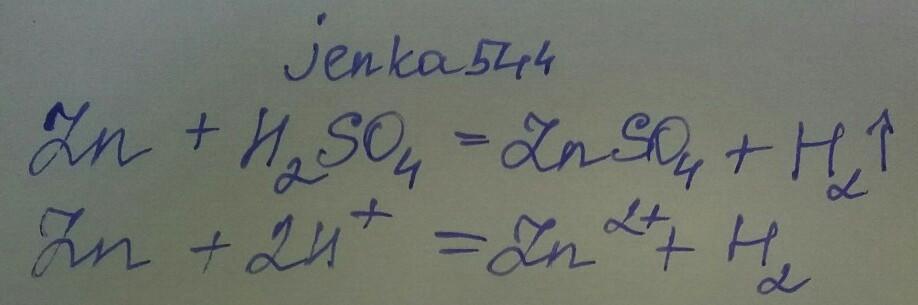 jenka544
Zn + H₂SO₄ = ZnSO₄ + H₂↑
Zn + 2H⁺ = Zn²⁺ + H₂